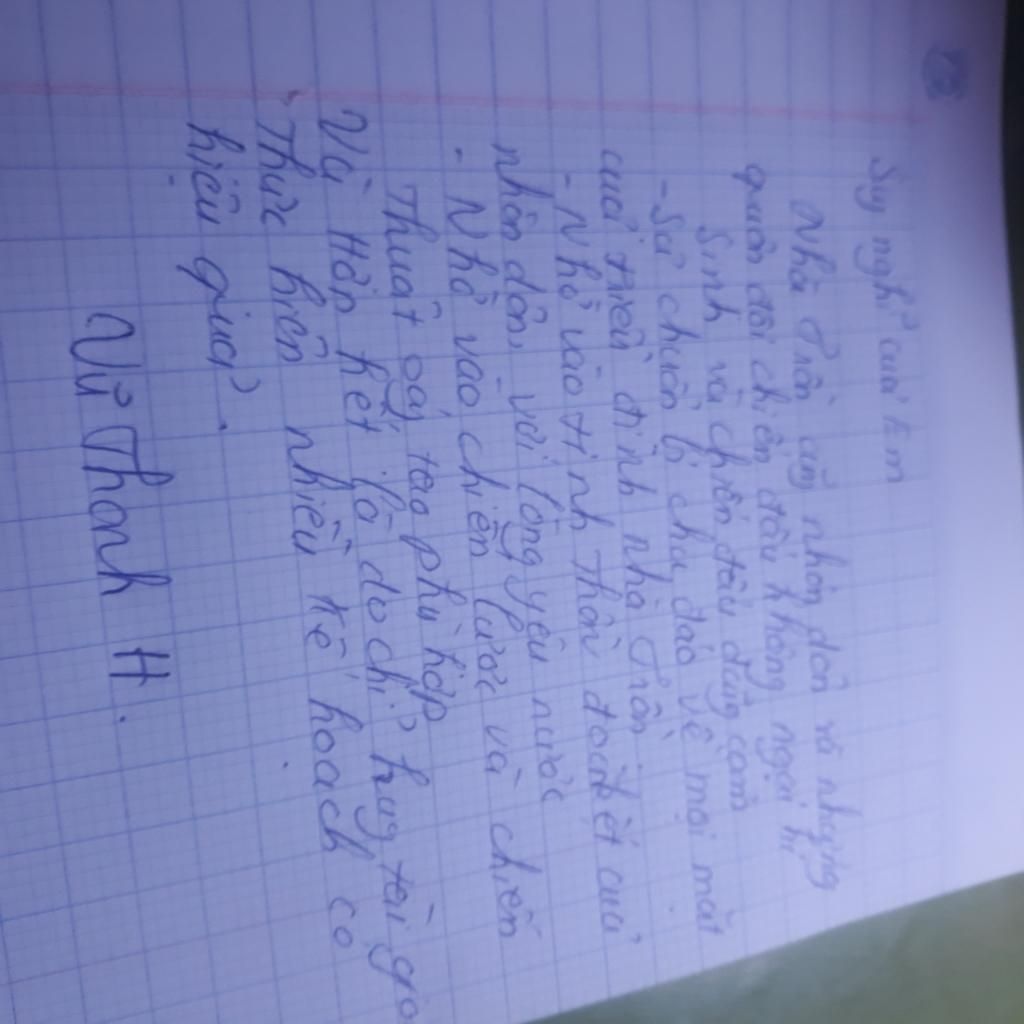 Suy nghĩ của em
Nhà Trần cùng nhân dân và những
quân đôi chiến đấu không ngại hi
Sinh và chiến đấu dũng cảm
- Sự chuẩn bị chu đáo về mọi mặt
của triều đình nhà Trần
- Nhờ vào tinh thần đoàn kết của
nhân dân, với lòng yêu nước
- Nhờ vào chiến lược và chiến
Thuật oấy tạo phù hợp
Và Hơn hết là do chỉ huy tài giỏ
Thực hiện nhiều kế hoạch có
hiệu quả.
Vũ Thanh H.